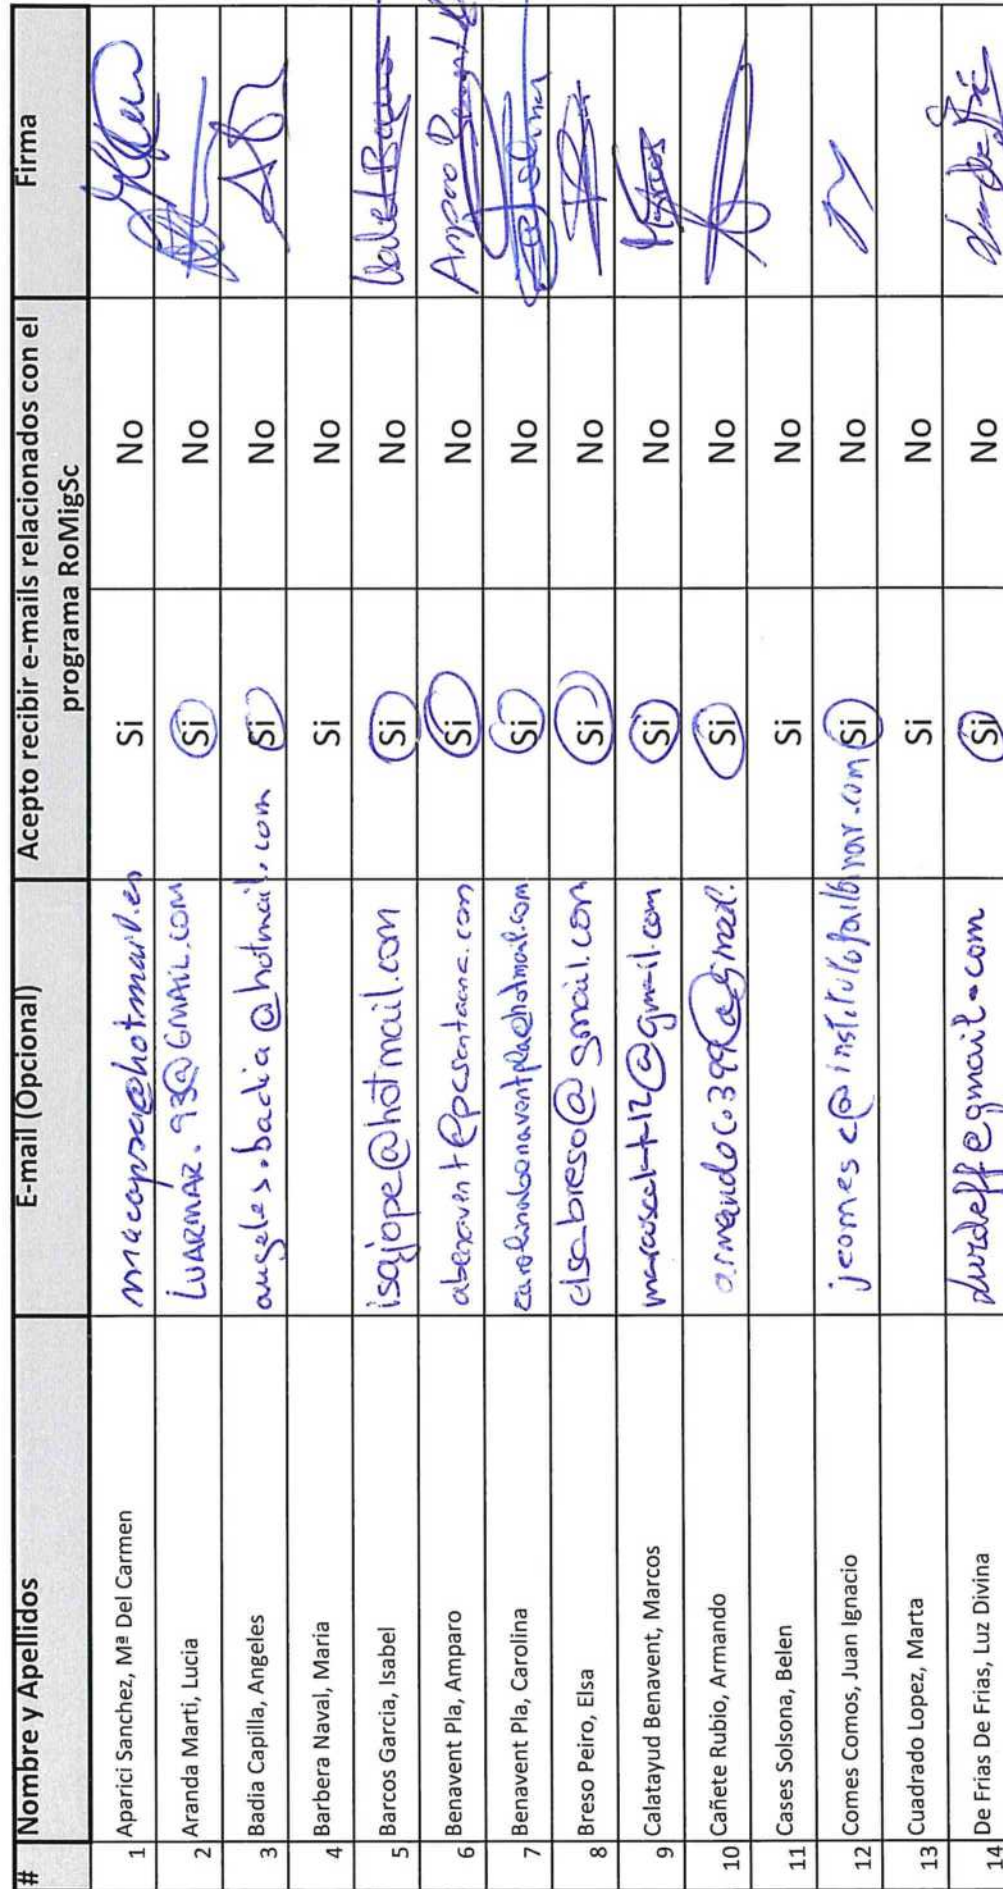 # Nombre y Apellidos E-mail (Opcional) Acepto recibir e-mails relacionados con el programa RoMigSc Firma
1 Aparici Sanchez, Mª Del Carmen macapsa@hotmail.es Si No
2 Aranda Marti, Lucia LUARMAR.93@GMAIL.COM Si No
3 Badia Capilla, Angeles angeles.badia@hotmail.com Si No
4 Barbera Naval, Maria Si No
5 Barcos Garcia, Isabel isajope@hotmail.com Si No
6 Benavent Pla, Amparo Si No Amparo
7 Benavent Pla, Carolina carolinabenaventpla@hotmail.com Si No Carolina
8 Breso Peiro, Elsa elsabreso@gmail.com Si No
9 Calatayud Benavent, Marcos Si No Marcos
10 Cañete Rubio, Armando Si No
11 Cases Solsona, Belen Si No
12 Comes Comos, Juan Ignacio Si No
13 Cuadrado Lopez, Marta Si No
14 De Frias De Frias, Luz Divina Si No